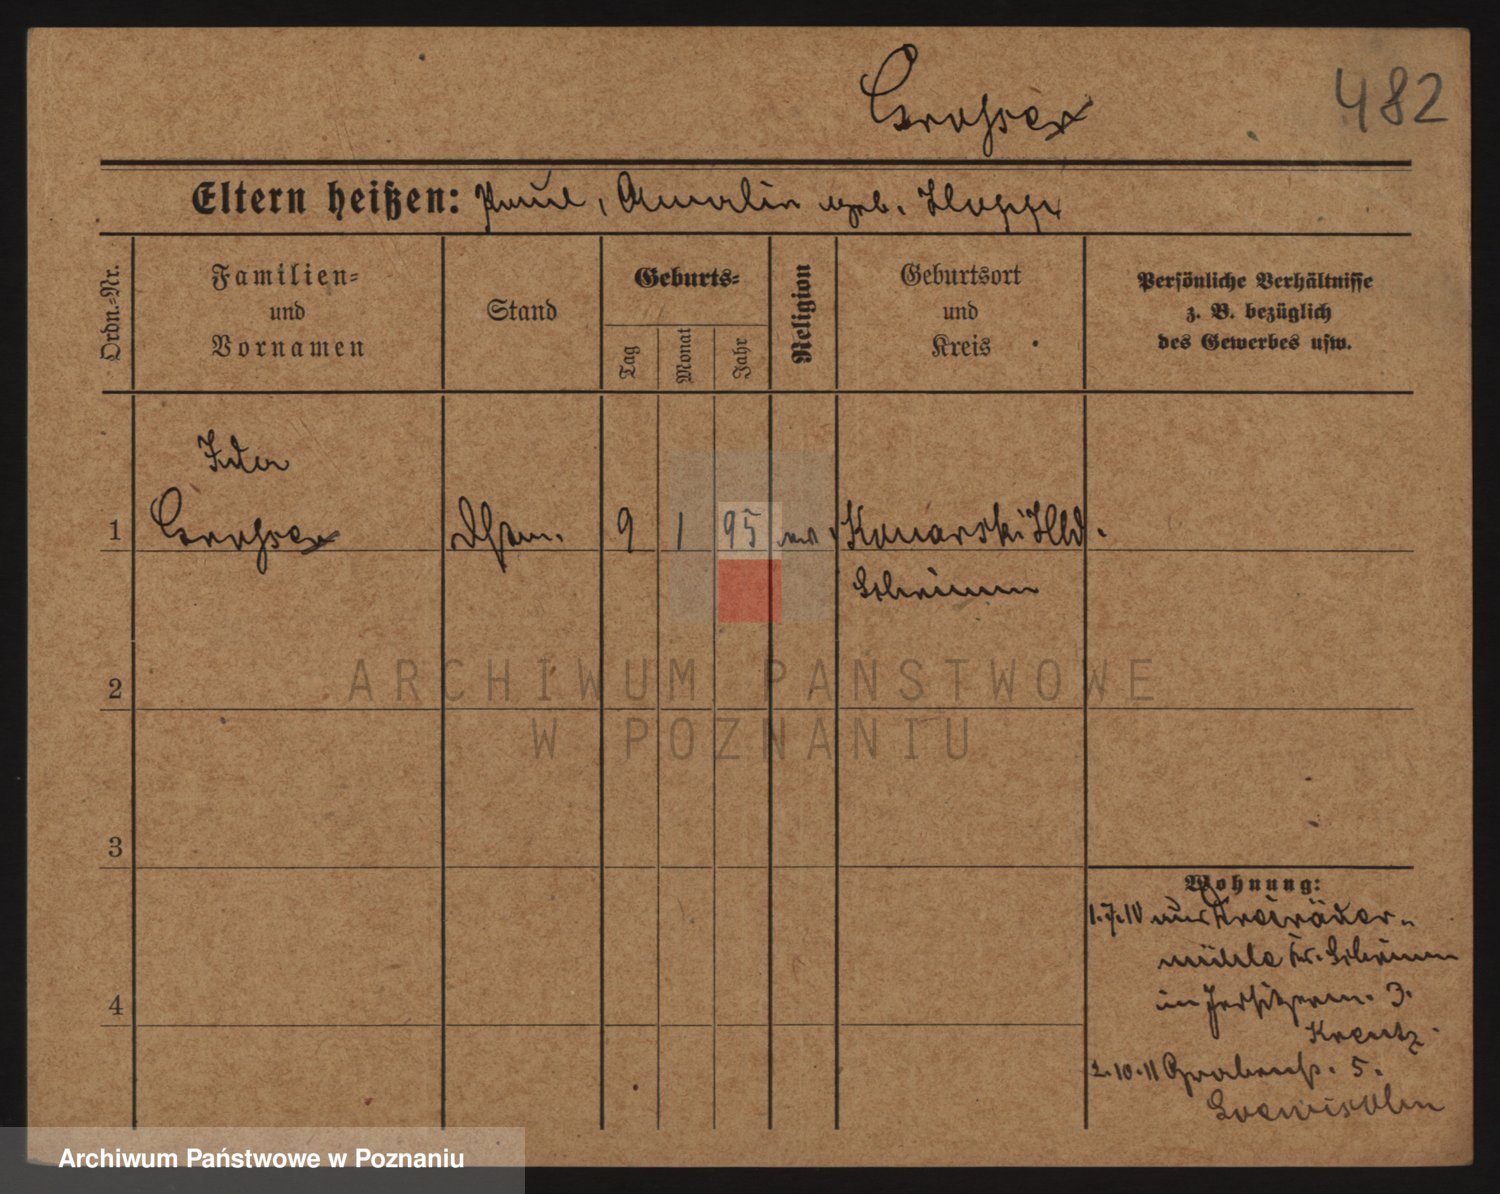 Grosser
482
Eltern heißen: Paul, Amalie geb. Hoppe
Ordn.-Nr.
Familien-
und
Vornamen
Stand
Geburts-
Tag
Monat
Jahr
Religion
Geburtsort
und
Kreis
Persönliche Verhältnisse
z. B. bezüglich
des Gewerbes usw.
Ida
1 Grosser 9 1 95 ev. Konarski Hld.
Schrimm
2
3
4
Wohnung:
1.7.10 aus
mühle Kr. Schrimm
in 3.
Kreutz.
2.10.11 Grabenstr. 5.
ARCHIWUM PAŃSTWOWE
W POZNANIU
Archiwum Państwowe w Poznaniu